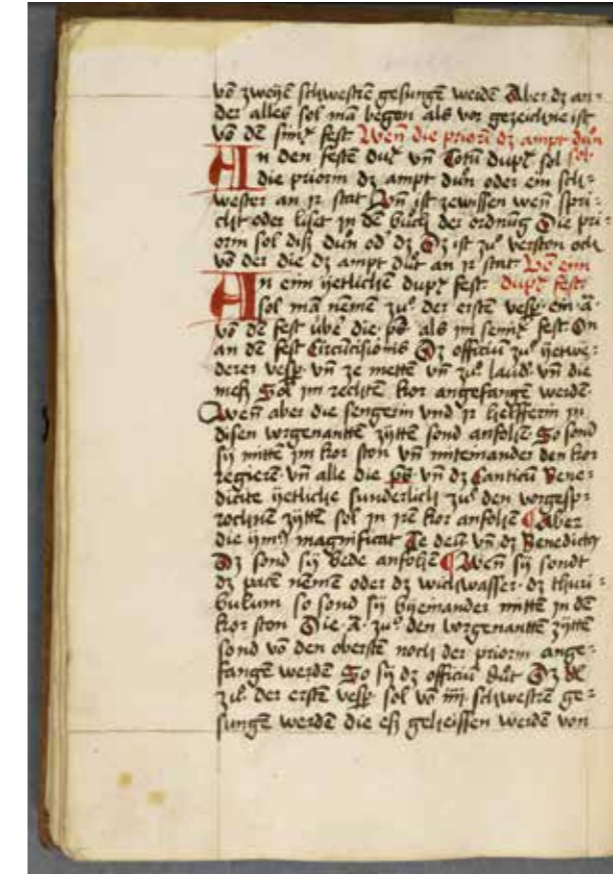 vō zweyē schwestrē gesungē werdē Aber dz an⸗
der alles sol mā began als vor gezeichnet ist
vō dē simꝝ fest Wen̄ die priorī dz ampt dūn
An den festē dupꝝ vn̄ Totū dupꝝ sol sol
die priorin dz ampt dūn oder ein sch⸗
wester an ir stat Vn̄ ist zewissen wen̄ spri⸗
cht oder liset in dē bůch der ordnūg Die pri⸗
orin sol diß dūn od' dz Dz ist zů verston och
vō der die dz ampt důt an ir stat Vō eim
An eim yetlichē dupꝝ fest dupꝝ fest
sol mā nēmē zů der erstē vesp̄ ein ā
vō dē fest übe' die ps̄ als in semꝝ fest On
an dē fest Circūcisionis Dz officiū zů yetwe⸗
derer vesp̄ vn̄ ze mettē vn̄ zů laud' vn̄ die
meß Sol im rechtē kor angefangē werdē
wen̄ aber die sengerin vnd ir helfferin in
disen vorgenantē zyttē sond anfohē So sond
sy mittē im kor ston vn̄ miteinander den kor
regierē vn̄ alle die ps̄ vn̄ dz Canticū Bene⸗
dicite yetliche sunderlich zů den vorgesp⸗
rochnē zyttē sol in irē kor anfohē Aber
die ymꝰ magnificat Te deū vn̄ dz Benedictꝰ
Dz sond sy bede anfohē Wen̄ sy sondt
dz pace nēmē oder dz wichwasser dz thuri⸗
bulum so sond sy byeinander mittē in dē
kor ston Die ā zů den vorgenantē zyttē
sond vō den oberstē noch der priorin ange⸗
fangē werdē So sy dz officiū důt Dz
zů der erstē vesp̄ sol vō iiij schwestrē ge⸗
sungē werdē die eß geheissen werdē von